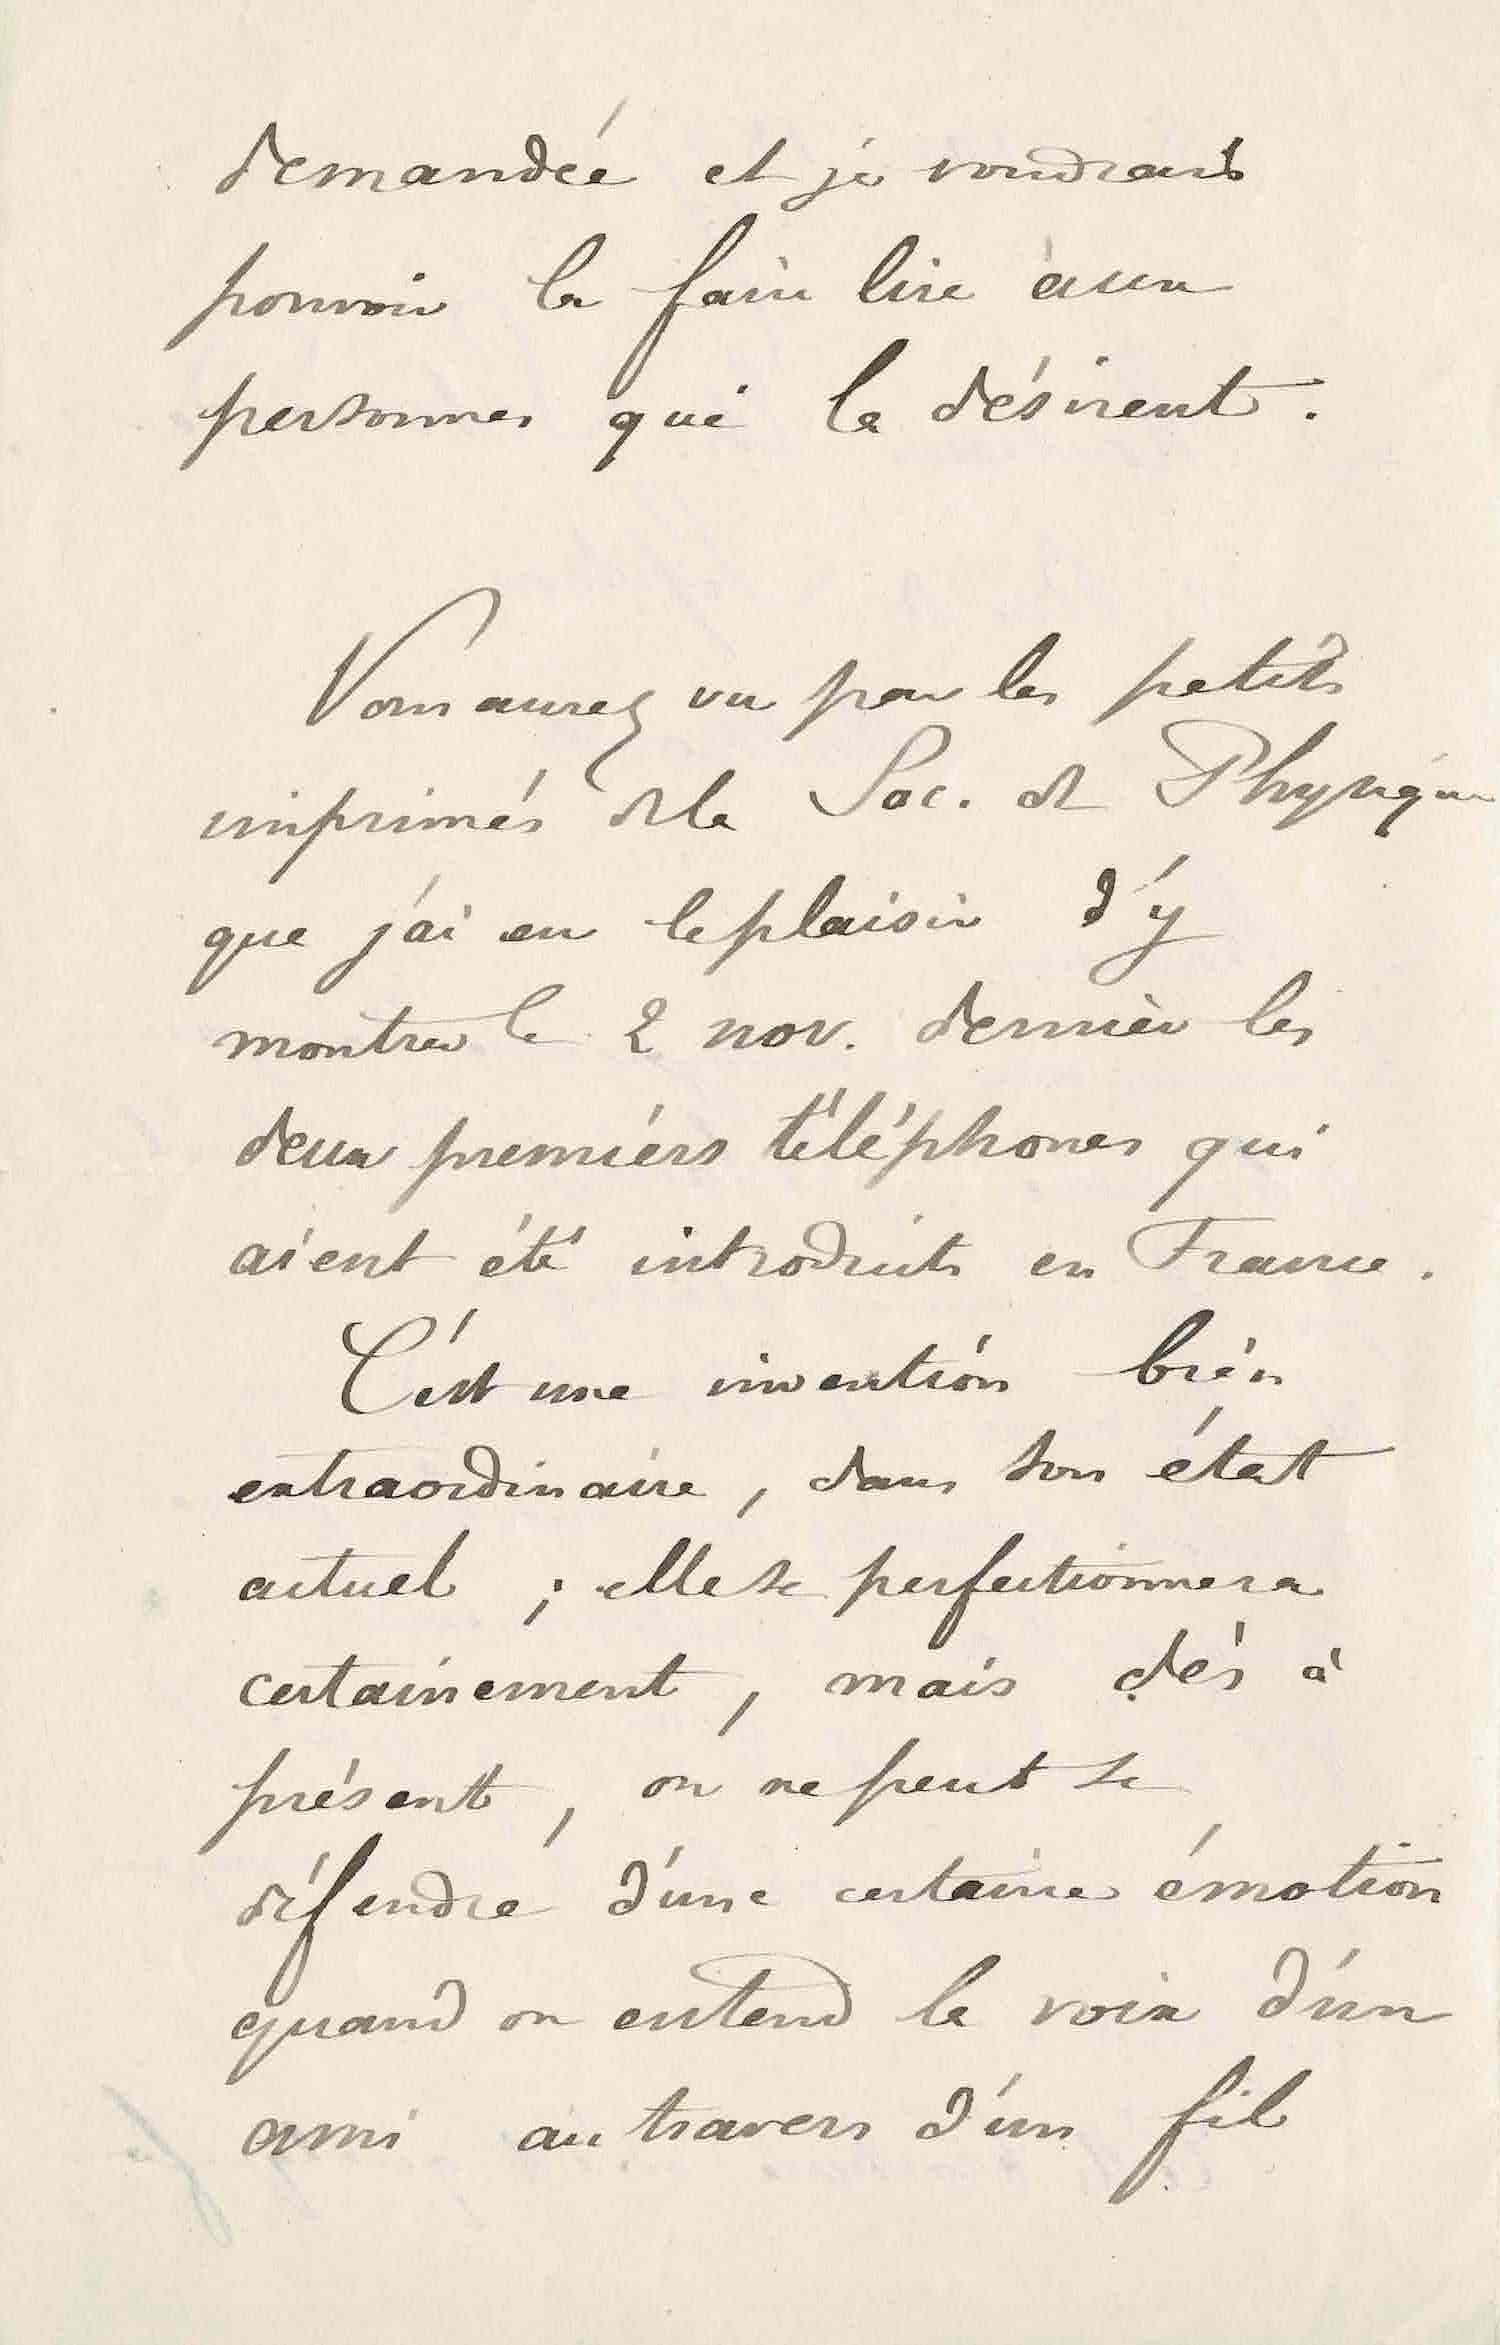 demandée et je voudrais
pouvoir la faire lire aux
personnes qui la désirent.
Vous aurez vu par les petits
imprimés de la Soc. de Physique
que j'ai eu le plaisir d'y
montrer le 2 nov. dernier les
deux premiers téléphones qui
aient été introduits en France.
C'est une invention bien
extraordinaire, dans son état
actuel ; elle se perfectionnera
certainement, mais dès à
présent, on ne peut se
défendre d'une certaine émotion
quand on entend la voix d'un
ami au travers d'un fil